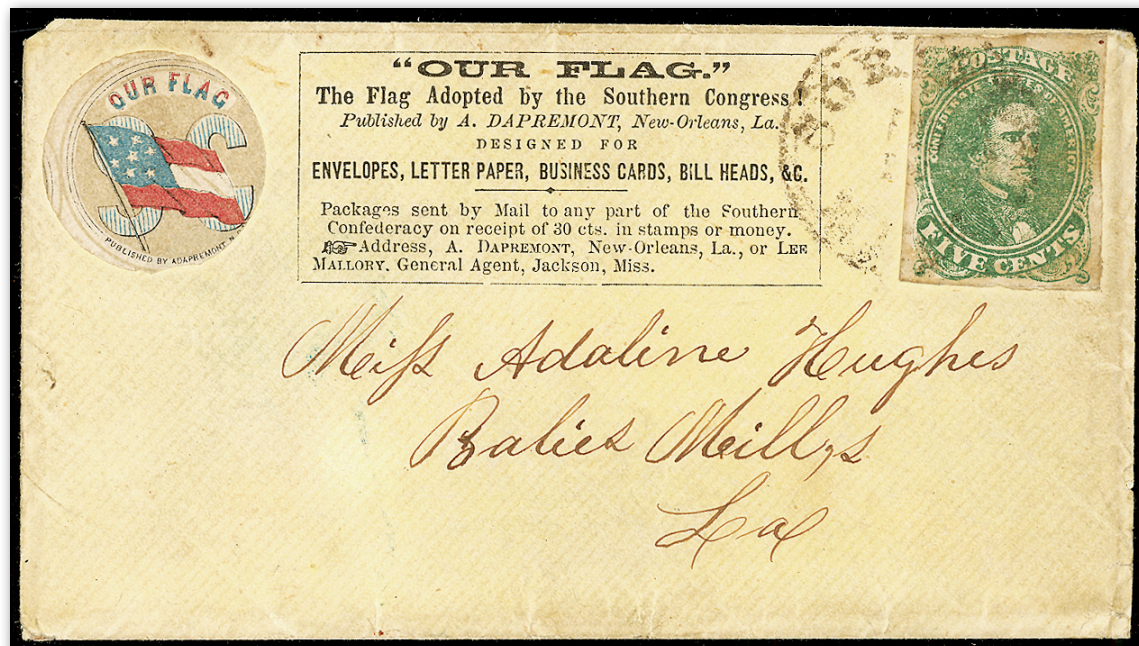 OUR FLAG
CS
PUBLISHED BY ADAPREMONT N.O.
"OUR FLAG."
The Flag Adopted by the Southern Congress!
Published by A. DAPREMONT, New-Orleans, La.
DESIGNED FOR
ENVELOPES, LETTER PAPER, BUSINESS CARDS, BILL HEADS, &C.
Packages sent by Mail to any part of the Southern
Confederacy on receipt of 30 cts. in stamps or money.
☞Address, A. DAPREMONT, New-Orleans, La., or LEE
MALLORY. General Agent, Jackson, Miss.
POSTAGE
CONFEDERATE STATES OF AMERICA
FIVE CENTS
Miſs Adaline Hughes
Balies Mills
La